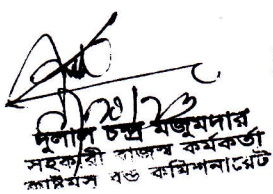 দুলাল চন্দ্র মজুমদার
সহকারী রাজস্ব কর্মকর্তা
কাষ্টমস বন্ড কমিশনারেট